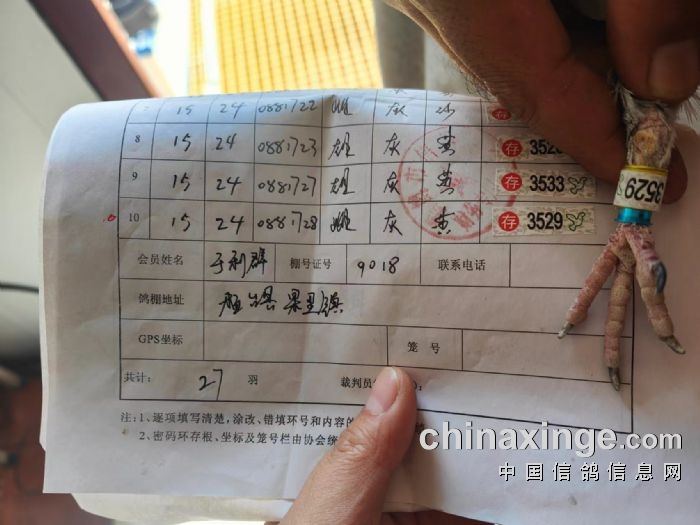 15 24 0881722 雌 灰 沙
8 15 24 0881723 雄 灰 黄 存 352
9 15 24 0881727 雄 灰 黄 存 3533
10 15 24 0881728 雌 灰 黄 存 3529
3529
会员姓名 于利群 棚号证号 9018 联系电话
鸽棚地址 果里镇
GPS坐标 笼 号
共计: 27 羽 裁判员
注:1、逐项填写清楚,涂改、错填环号和内容的
2、密码环存根、坐标及笼号栏由协会统
chinaxinge.com
中国信鸽信息网